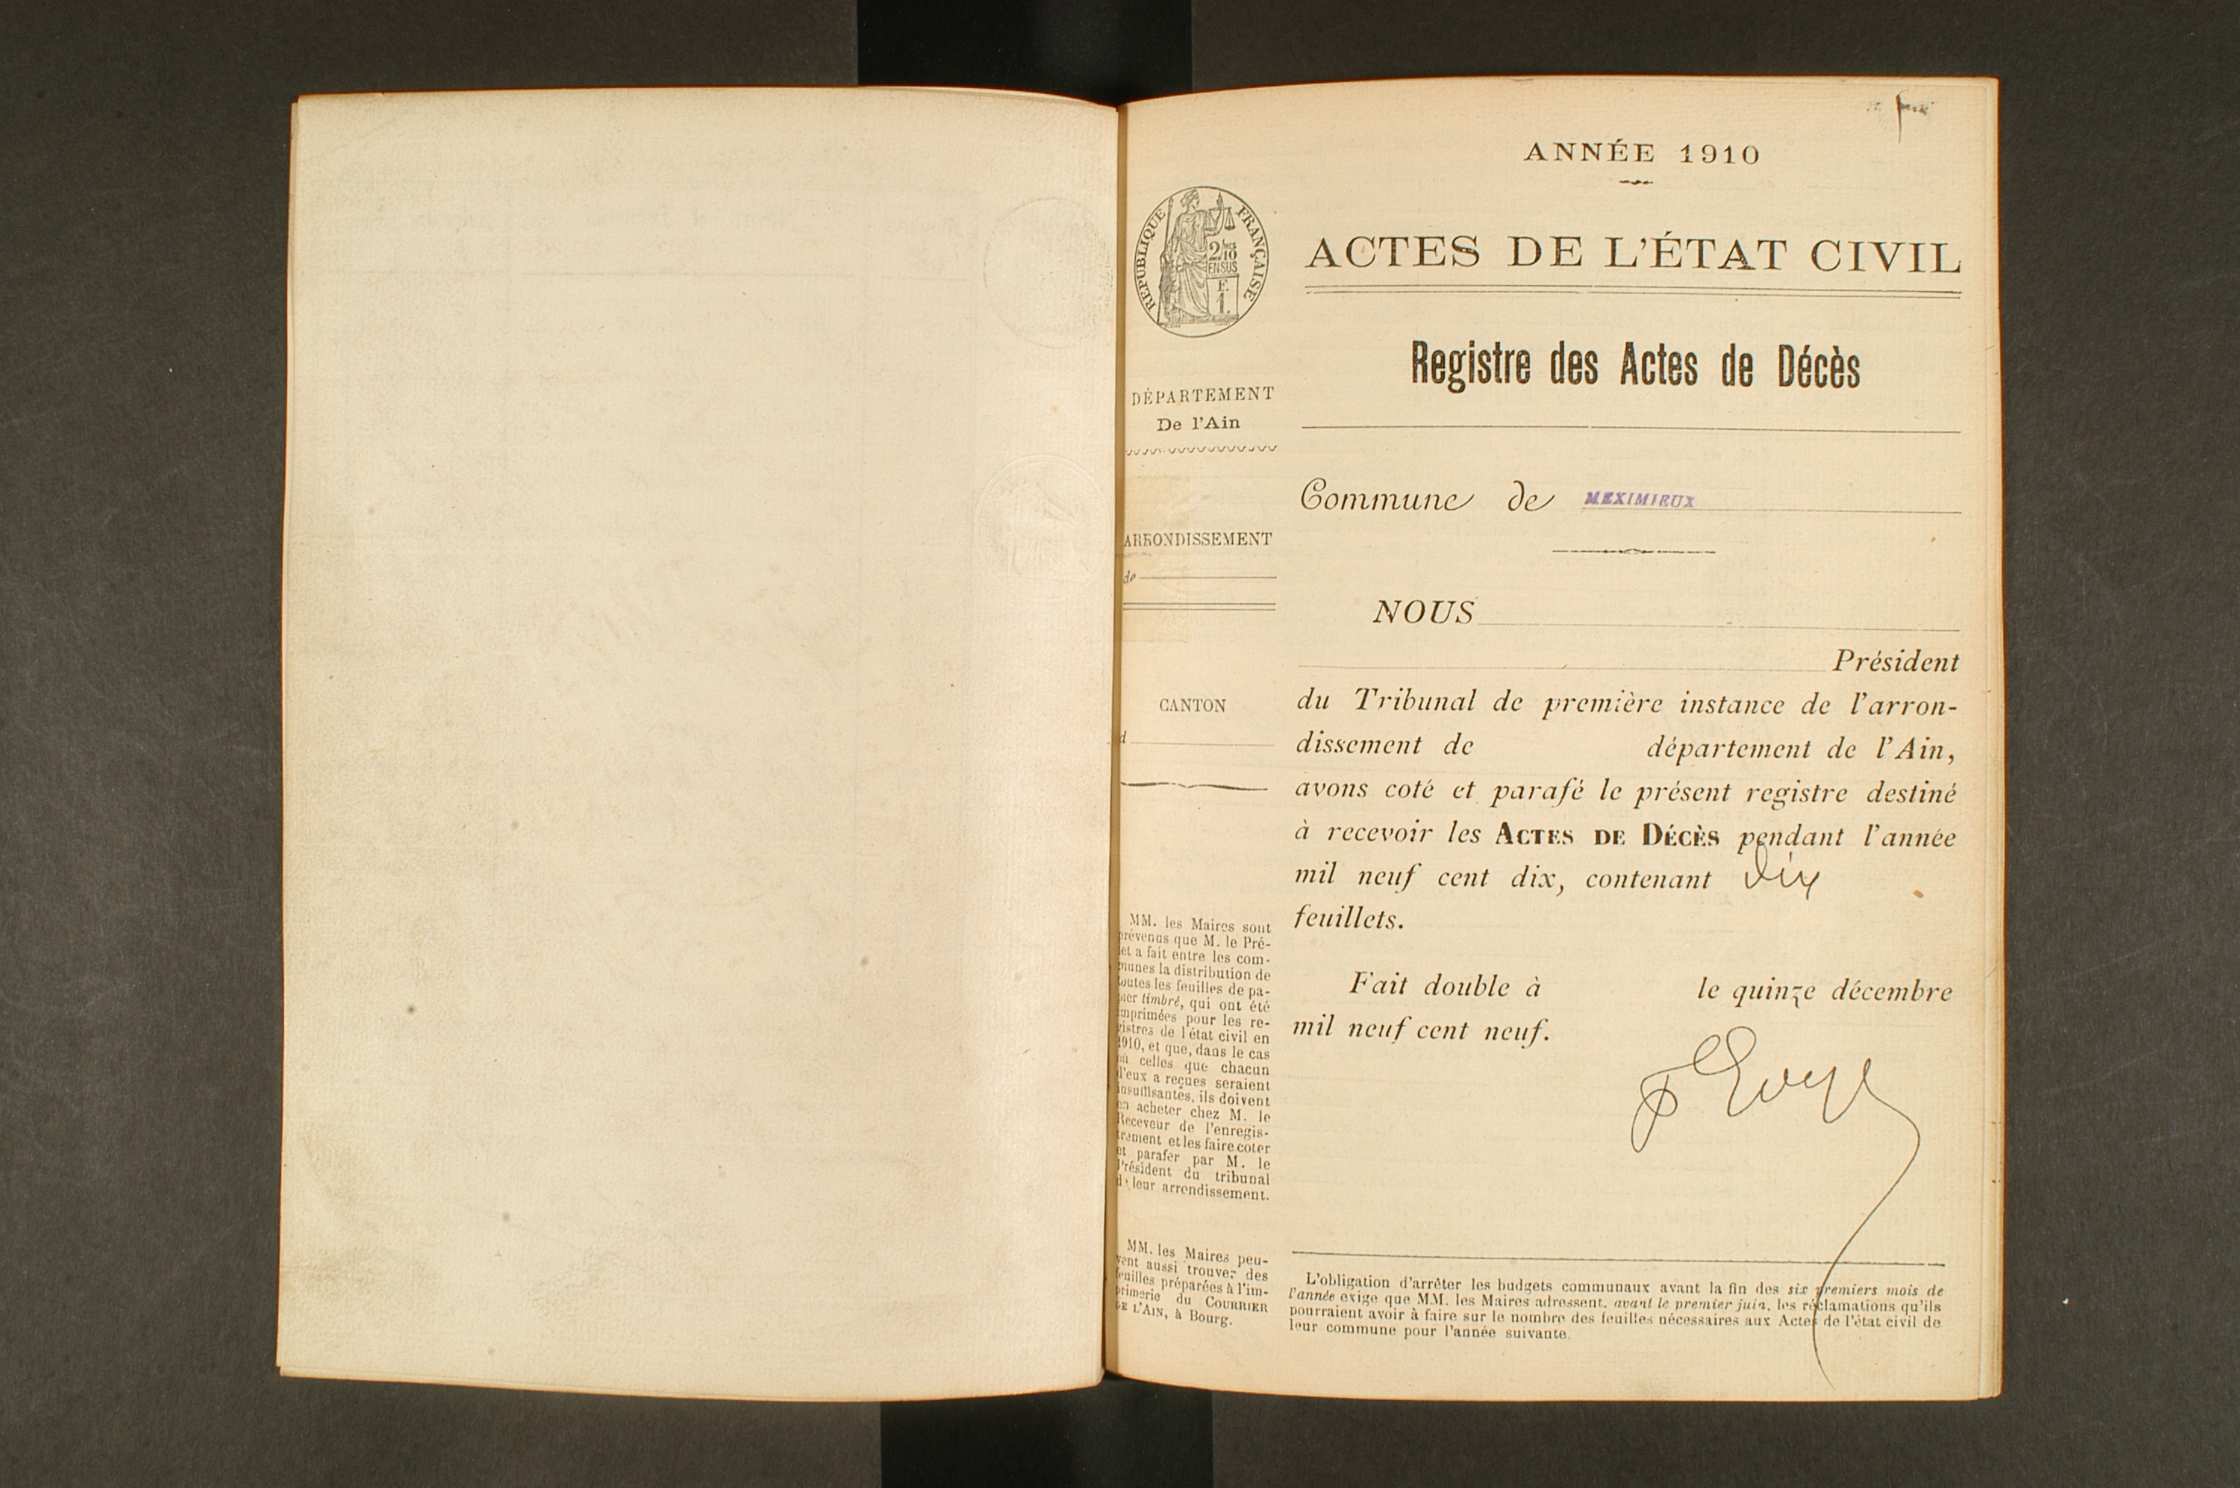 ANNÉE 1910
ACTES DE L'ÉTAT CIVIL
Registre des Actes de Décès
Commune de MEXIMIEUX
NOUS
Président
du Tribunal de première instance de l'arron-
dissement de département de l'Ain,
avons coté et parafé le présent registre destiné
à recevoir les ACTES DE DÉCÈS pendant l'année
mil neuf cent dix, contenant dix
feuillets.
Fait double à le quinze décembre
mil neuf cent neuf.
L'obligation d'arrêter les budgets communaux avant la fin des six premiers mois de
l'année exige que MM. les Maires adressent, avant le premier juin, les réclamations qu'ils
pourraient avoir à faire sur le nombre des feuilles nécessaires aux Actes de l'état civil de
leur commune pour l'année suivante.
RÉPUBLIQUE FRANÇAISE
2/10
EN SUS
F.
1.
DÉPARTEMENT
De l'Ain
ARRONDISSEMENT
de
CANTON
d
MM. les Maires sont
prévenus que M. le Pré-
fet a fait entre les com-
munes la distribution de
toutes les feuilles de pa-
pier timbré, qui ont été
imprimées pour les re-
gistres de l'état civil en
1910, et que, dans le cas
où celles que chacun
d'eux a reçues seraient
insuffisantes, ils doivent
en acheter chez M. le
Receveur de l'enregis-
trement et les faire coter
et parafer par M. le
Président du tribunal
de leur arrondissement.
MM. les Maires peu-
vent aussi trouver des
feuilles préparées à l'im-
primerie du COURRIER
DE L'AIN, à Bourg.